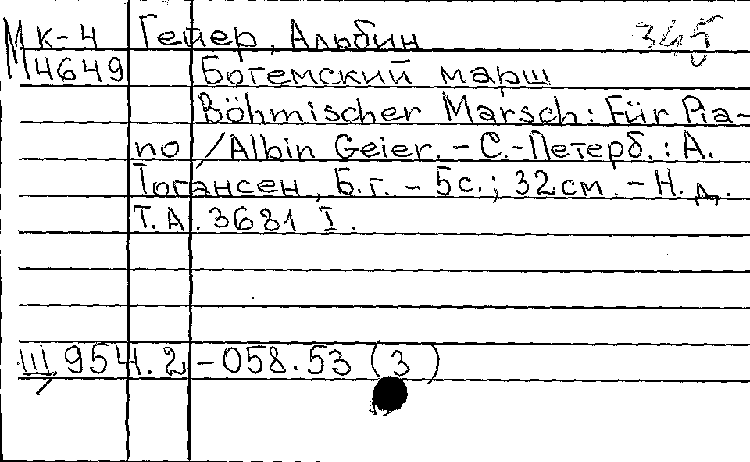 М к-4 Гейер, Альбин 345
М 4649 Богемский марш
Böhmischer Marsch: Für Pia-
no / Albin Geier. - С.-Петерб.: А.
Іогансен, Б.г. - 5с.; 32см. - Н. д.
T. A. 3681 I.
Ш 954.2 - 058.53 (3)